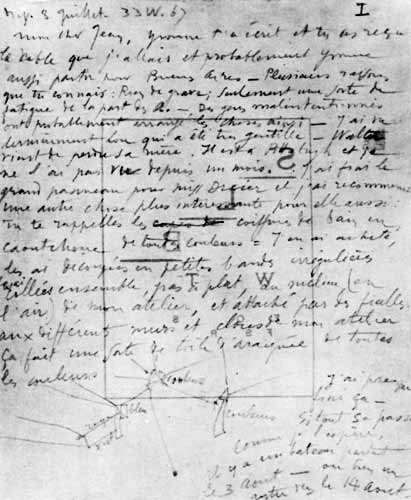 I
N.Y. 8 juillet 33 W. 67
mon cher Jean, Yvonne t'a écrit et tu as reçu
le cable que j'allais et probablement Yvonne
aussi partir pour Buenos Aires — Plusieurs raisons
que tu connais: Rien de grave; Seulement une sorte de
fatigue de la part des A. — Des gens malintentionnés
ont probablement arrangé les choses ainsi — J'ai vu
dernièrement Lou qui a été très gentille — Walter
vient de perdre sa mère. Il est à Pittsburgh et je
ne l'ai pas vu depuis un mois. — J'ai fini le
grand panneau pour miss Dreier et j'ai recommencé
une autre chose plus intéressante pour elle aussi:
Tu te rappelles les coiffures de bain en
caoutchouc de toutes couleurs = J'en ai acheté,
les ai découpées en petites bandes irrégulières
collées ensemble, pas à plat, au milieu (en
l'air) de mon atelier, et attaché par des ficelles
aux différents murs et clous de mon atelier
Ça fait une sorte de toile d'araignée de toutes
les couleurs
S
W
bleu
couleurs
couleurs
J'ai presque
fini ça —
Si tout se passe
comme je l'espère,
il y a un bateau partant
le 3 Aout — ou bien un
autre vers le 14 Aout